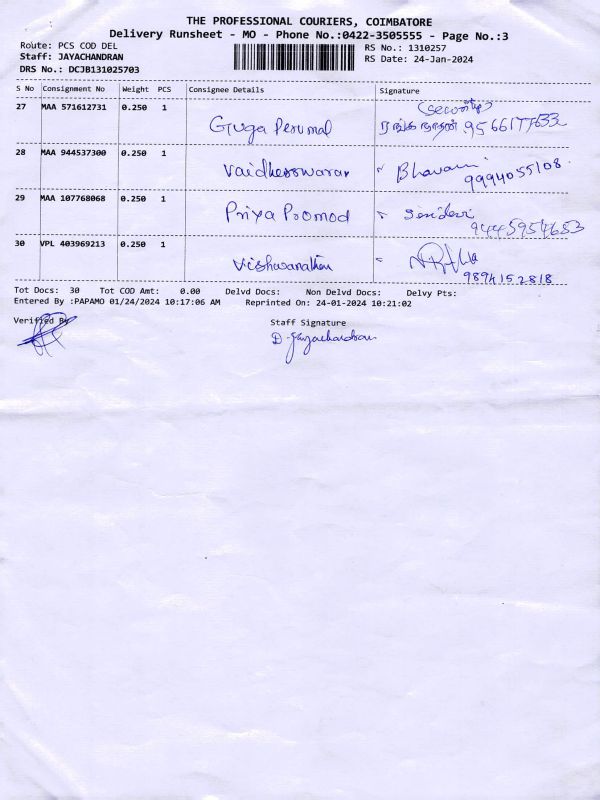 THE PROFESSIONAL COURIERS, COIMBATORE
Delivery Runsheet - MO - Phone No.:0422-3505555 - Page No.:3
Route: PCS COD DEL
RS No.: 1310257
Staff: JAYACHANDRAN
RS Date: 24-Jan-2024
DRS No.: DCJB131025703
S No Consignment No Weight PCS Consignee Details Signature
27 MAA 571612731 0.250 1
(Security)
Guga Perumal ரங்கநாதன்
28 MAA 944537300 0.250 1
Vaidheeswaran Bhavani
9994055108
29 MAA 107768068 0.250 1
Priya Promod Sridevi
9445954653
30 VPL 403969213 0.250 1
Vishwanathan
9894152818
Tot Docs: 30 Tot COD Amt: 0.00 Delvd Docs: Non Delvd Docs: Delvy Pts:
Entered By :PAPAMO 01/24/2024 10:17:06 AM Reprinted On: 24-01-2024 10:21:02
Verified By
Staff Signature
D. Jayachandran